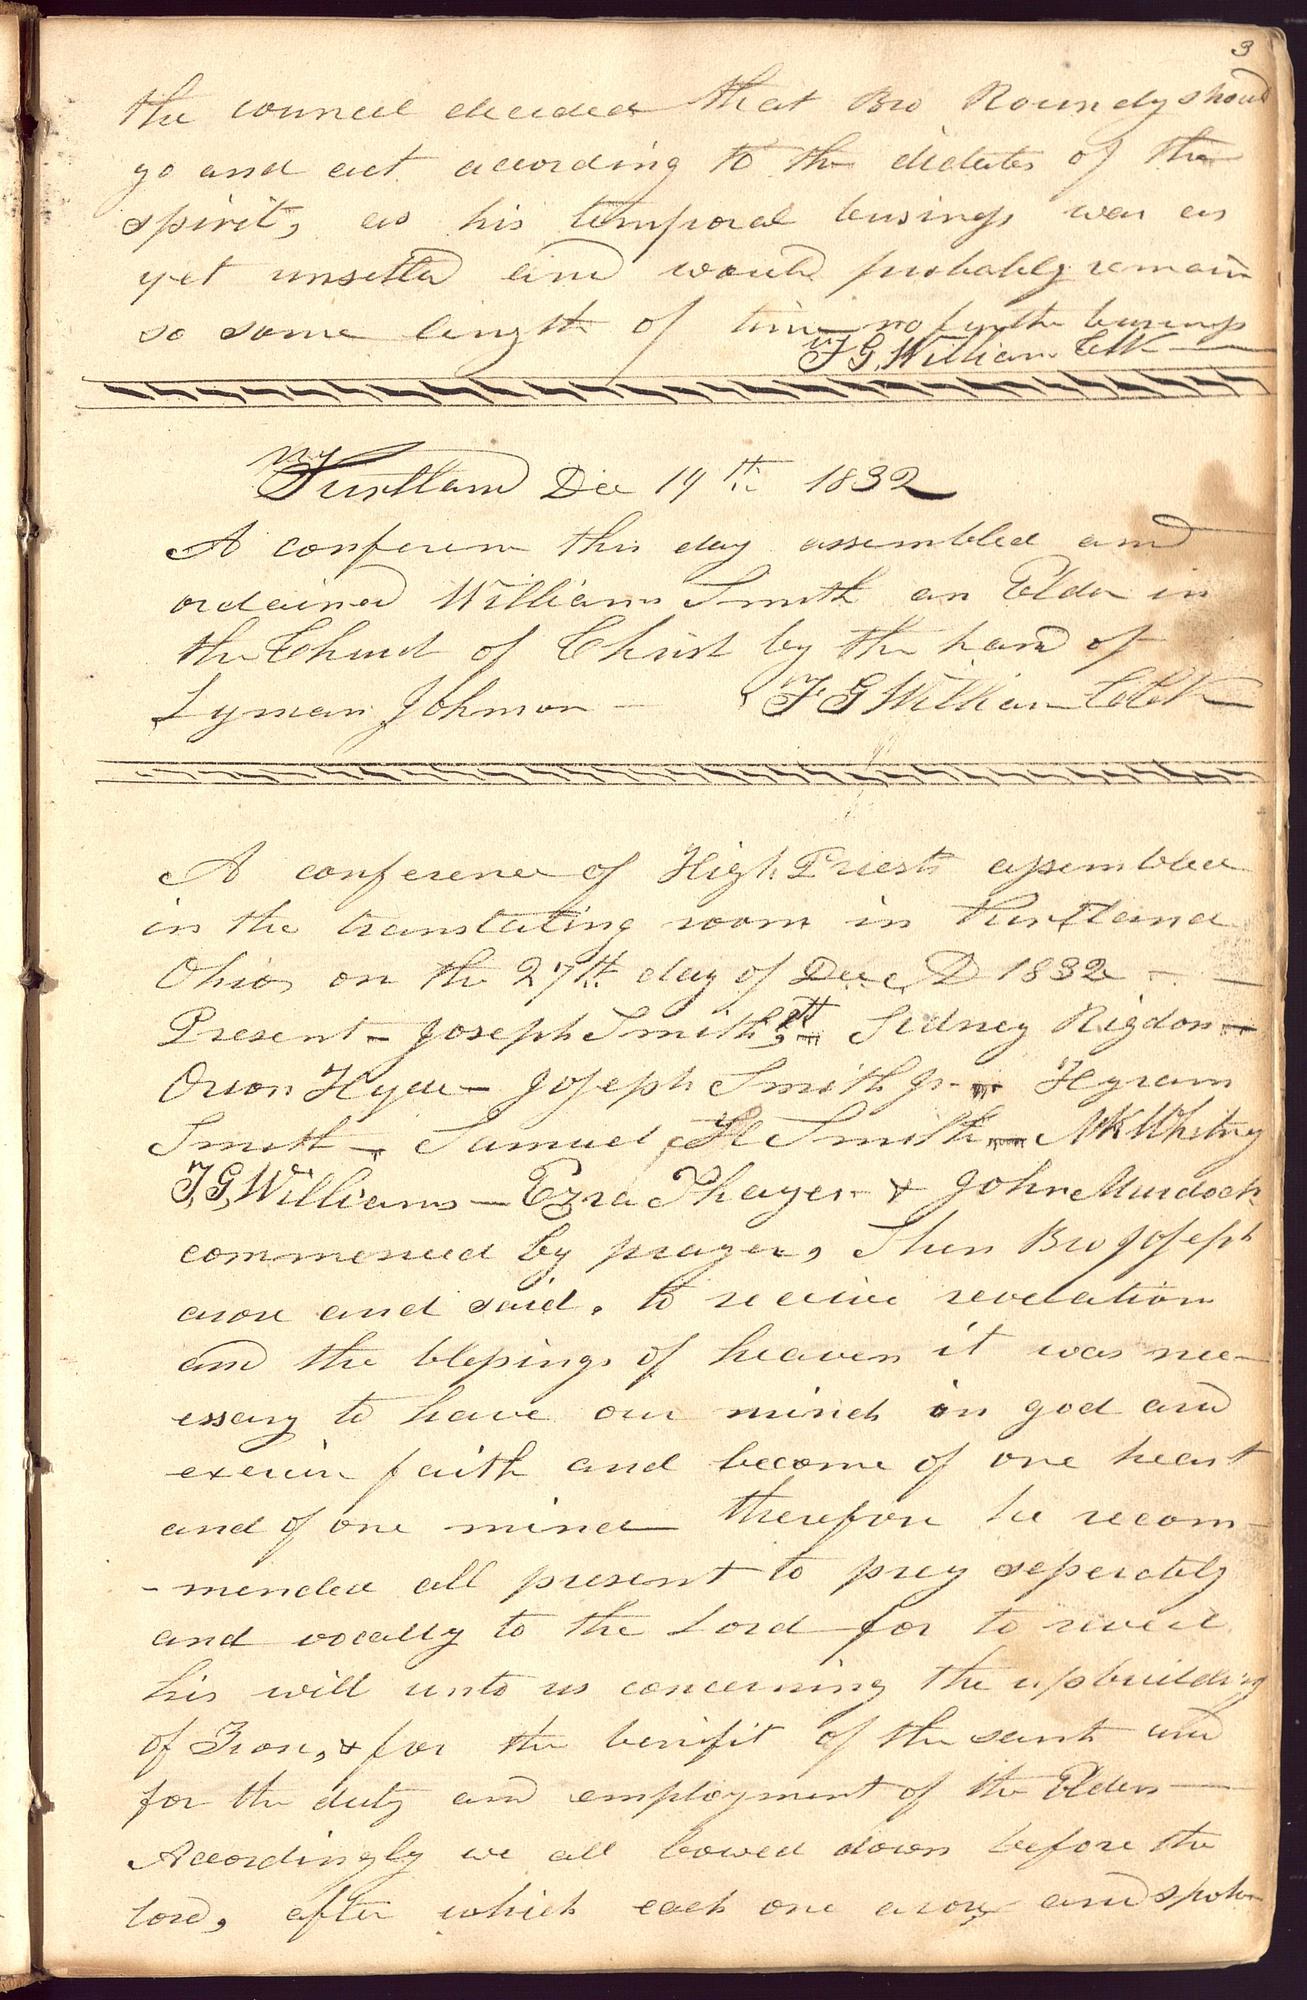 3
the council decided that Bro Roundy should
go and act according to the dictates of the
spirit, as his temporal busings was as
yet unsettld and would probably remain
so some length of time no further busings
F G. William Clk
Kirtland Dec 19th 1832
A conferen this day assembled and
ordained William Smith an Elder in
the Church of Christ by the hand of
Lyman Johnson — F G William Clk
A conference of High Priests assembled
in the translating room in Kirtland
Ohio on the 27th day of Dec. A D 1832 —
Present — Joseph Smith, Sidney Rigdon —
Orson Hyde — Joseph Smith Jr — Hyram
Smith — Samuel H Smith — N K Whitney
F, G, Williams — Ezra Thayer & John Murdock
commenced by prayer, Then Bro Joseph
arose and said, to receive revelation
and the blessings of heaven it was nec-
essary to have our minds on god and
exercise faith and become of one heart
and of one mind therefore he recom-
-mended all present to pray seperately
and vocally to the Lord for to reveal
his will unto us concerning the upbuilding
of Zion, & for the benifit of the saints and
for the duty and employment of the Elders —
Accordingly we all bowed down before the
Lord, after which each one arose and spoke